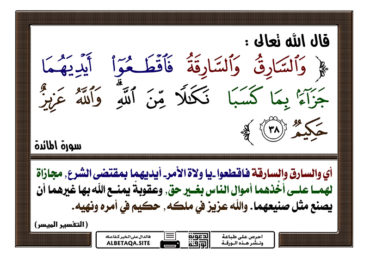 قال الله تعالى :
﴿ وَٱلسَّارِقُ وَٱلسَّارِقَةُ فَٱقۡطَعُوٓاْ أَيۡدِيَهُمَا
جَزَآءَۢ بِمَا كَسَبَا نَكَٰلٗا مِّنَ ٱللَّهِۗ وَٱللَّهُ عَزِيزٌ
حَكِيمٞ ٣٨ ﴾
سورة المائدة
أي والسارق والسارقة فاقطعوا ـ يا ولاة الأمر ـ أيديهما بمقتضى الشرع , مجازاة
لهما على أخذهما أموال الناس بغير حق , وعقوبة يمنع الله بها غيرهما أن
يصنع مثل صنيعهما . والله عزيز في ملكه , حكيم في أمره ونهيه .
( التفسير الميسر )
احرص على طباعة
ونشر هذه الورقة
فالدال على الخير كفاعله
ALBETAQA.SITE